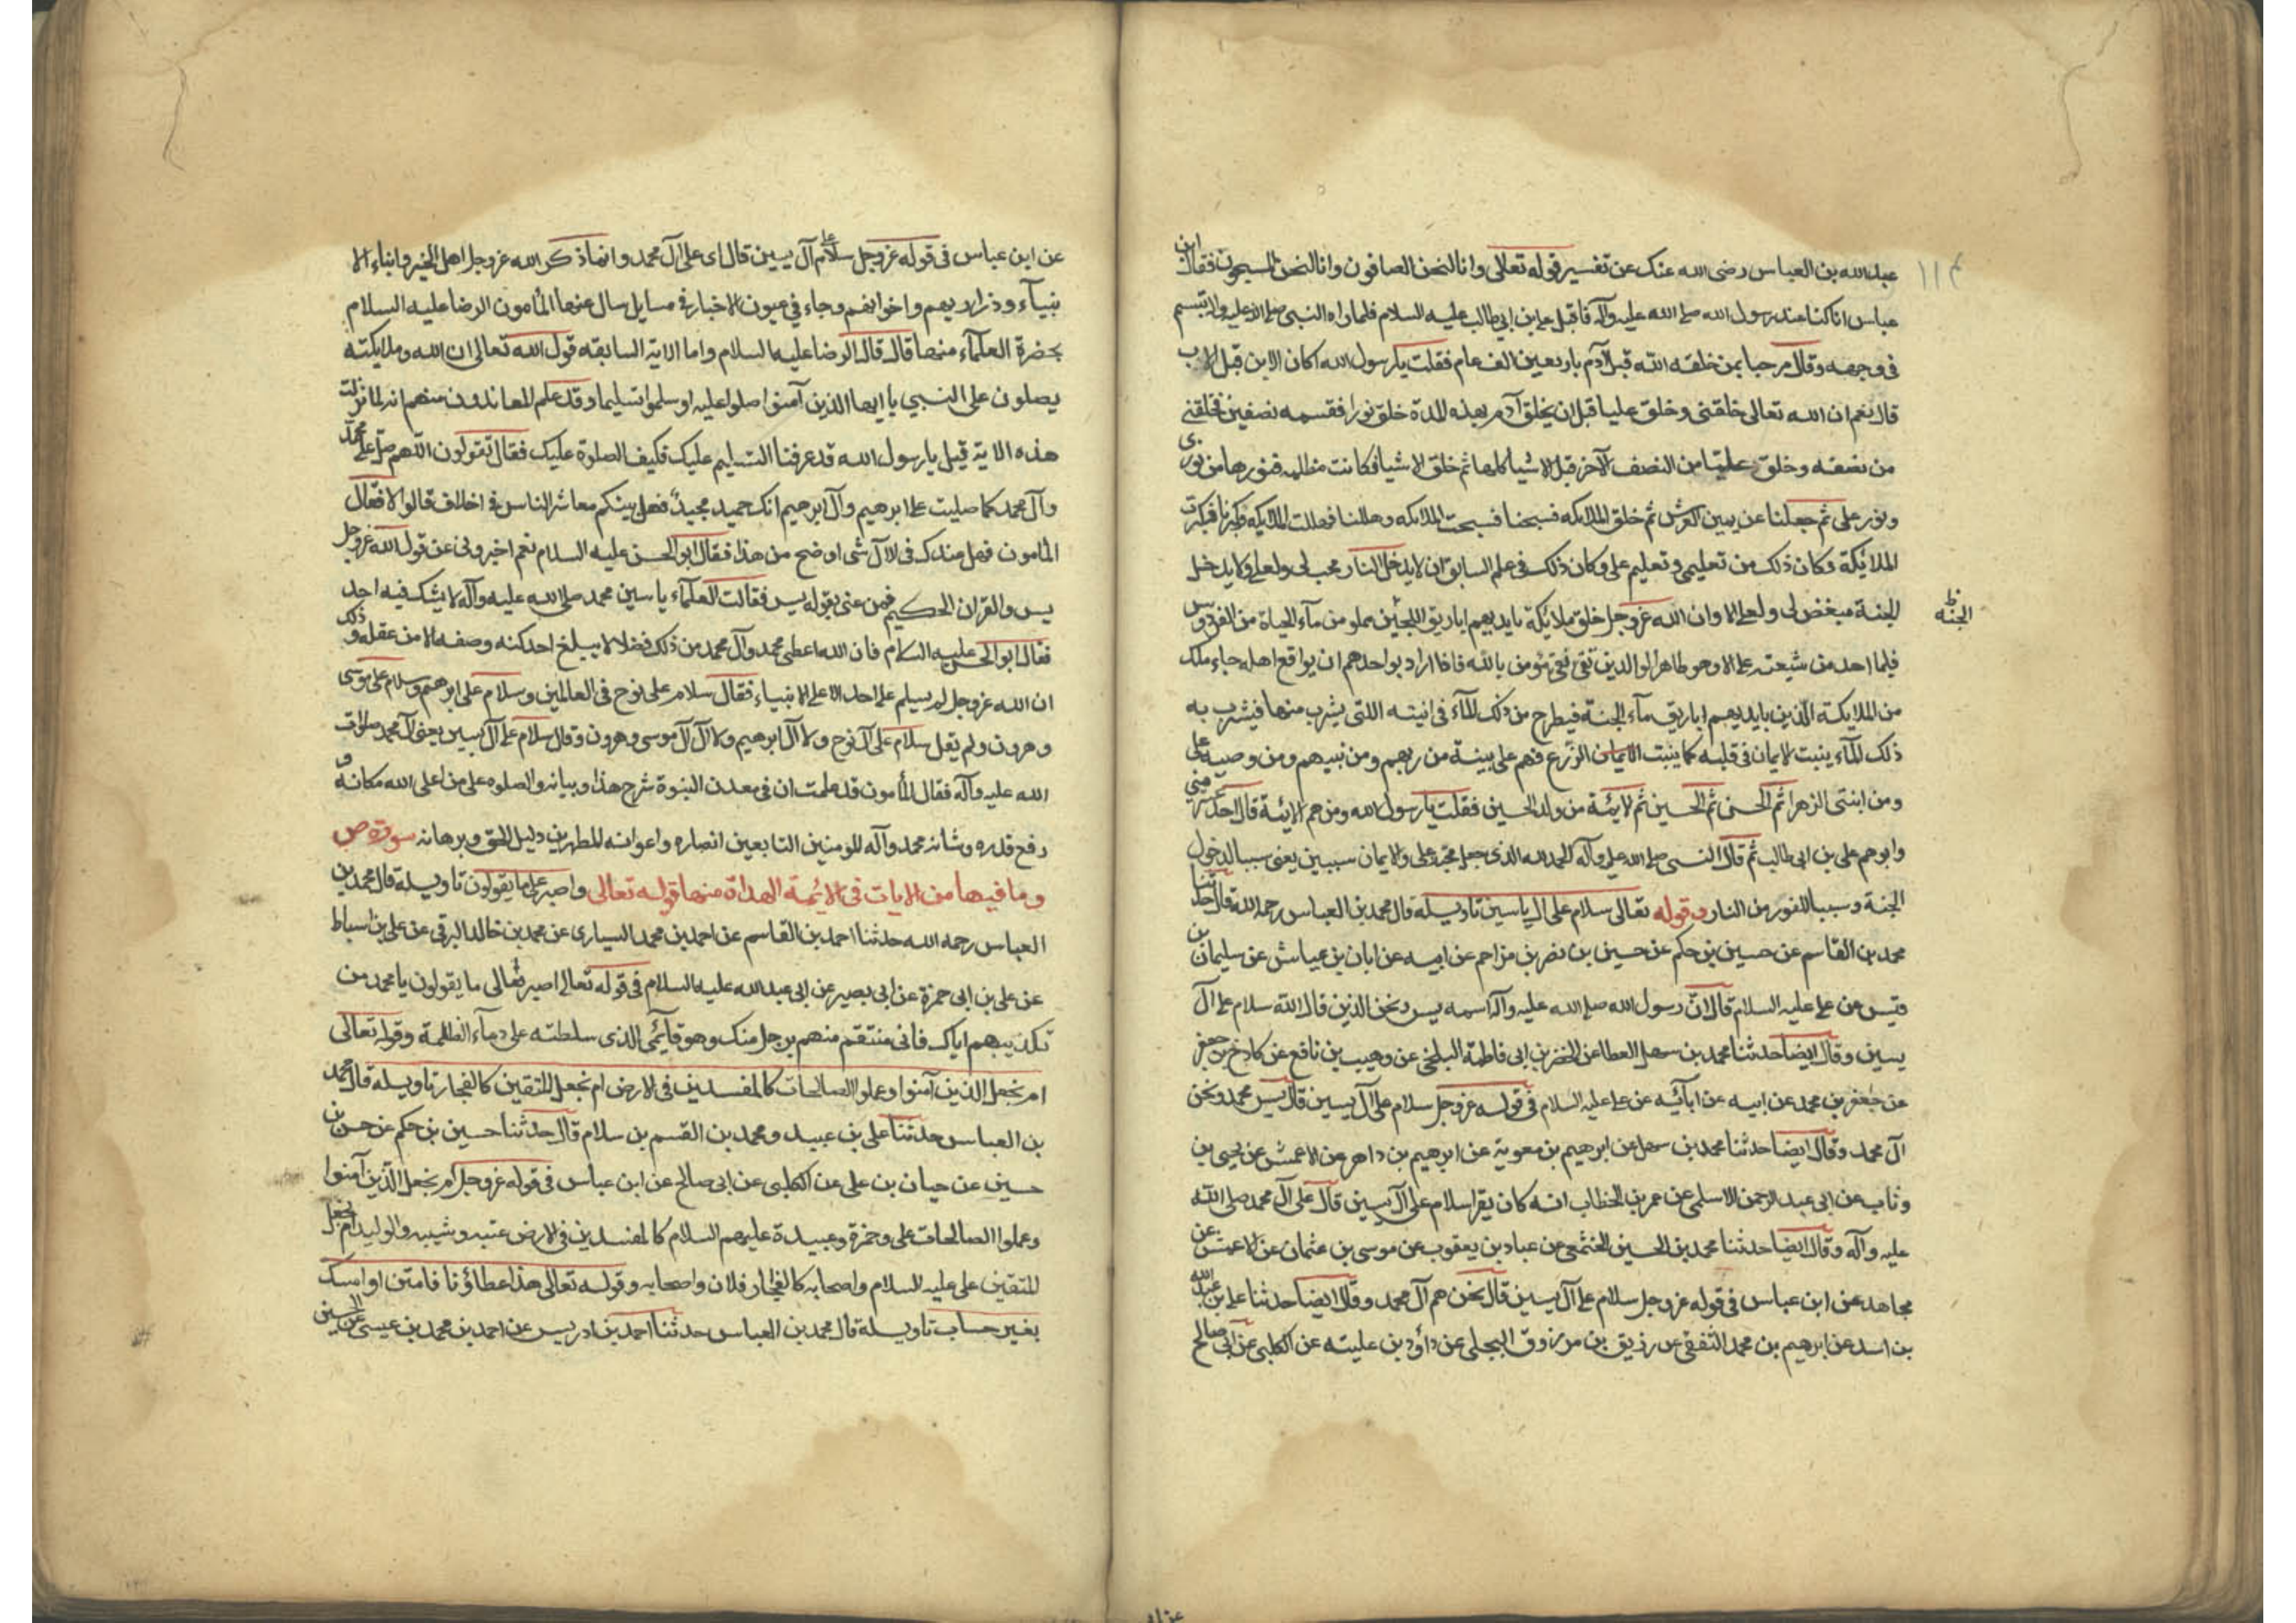 عبد الله بن العباس رضى الله عنك عن تفسير قوله تعالى وانا لنحن الصافون وانا لنحن المسبحون فقال ابن
عباس انا كنا عند رسول الله صلى الله عليه وآله فاقبل على بن ابي طالب عليه السلام فلما راه النبي صلى الله عليه وآله تبسم
في وجهه وقال مرحبا بمن خلقه الله قبل آدم باربعين الف عام فقلت يا رسول الله اكان الابن قبل الاب
قال نعم ان الله تعالى خلقني وخلق عليا قبل ان يخلق آدم بهذه المدة خلق نورا فقسمه نصفين فخلقني
من نصفه وخلق عليا من النصف الآخر قبل الاشيا كلها ثم خلق الاشيا فكانت مظلمه فنورها من نورى
ونور على ثم جعلنا عن يمين العرش ثم خلق الملائكه فسبحنا فسبحت الملائكه وهللنا فهللت الملائكه وكبرنا فكبرت
الملائكة وكان ذلك من تعليمى وتعليم على وكان ذلك في علم السابق ان لا يدخل النار محب لى ولعلى ولا يدخل
الجنة مبغض لى ولعلى الا وان الله عز وجل خلق ملائكة بايديهم اباريق اللجين مملو من مآء الحياة من الفردوس
الجنه ظ
فلما احد من شيعة على الا وهو طاهر الوالدين تقى نقى مؤمن بالله فاذا اراد بواحدهم ان يواقع اهله جاء ملك
من الملايكة الذين بايديهم اباريق مآء الجنة فيطرح من ذلك المآء فى انيته اللتى يشرب منها فيشرب به
ذلك المآء ينبت الايمان في قلبه كما ينبت الايمان الزرع فهم على بينة من ربهم ومن نبيهم ومن وصيه على
ومن ابنتى الزهرا ثم الحسن ثم الحسين ثم الائمة من ولد الحسين فقلت يا رسول الله ومن هم الائمة قال احد عشر منى
وابوهم على بن ابى طالب ثم قال النبى صلى الله عليه وآله الحمد لله الذى جعل محبة على والايمان سببين يعنى سببا لدخول
الجنة وسببا للفوز من النار وقوله تعالى سلام على ال ياسين تاويله قال محمد بن العباس رحمه الله قال حدثنا
محمد بن القاسم عن حسين بن حكم عن حسين بن نصر بن مزاحم عن ابيه عن ابان بن عياش عن سليمان بن
قيس عن على عليه السلام قال ان رسول الله صلى الله عليه وآله اسمه يس ونحن الذين قال الله سلام على آل
يسين وقال ايضا حدثنا محمد بن سهل العطا عن الخضر بن ابى فاطمة البلخى عن وهيب بن نافع عن كادح بن جعفر
عن جعفر بن محمد عن ابيه عن ابآئه عن على عليه السلام فى قوله عز وجل سلام على آل يسين قال يس محمد ونحن
آل محمد وقال ايضا حدثنا محمد بن سهل عن ابرهيم بن معوية عن ابرهيم بن داهر عن الاعمش عن يحيى بن
وثاب عن ابى عبد الرحمن الاسلمى عن عمر بن الخطاب انه كان يقرا سلام على آل يسين قال على آل محمد صلى الله
عليه وآله وقال ايضا حدثنا محمد بن الحسين الخثعمى عن عباد بن يعقوب عن موسى بن عثمان عن الاعمش عن
مجاهد عن ابن عباس فى قوله عز وجل سلام على آل يسين قال نحن هم آل محمد وقال ايضا حدثنا على بن عبد الله
بن اسد عن ابرهيم بن محمد الثقفى عن رزيق بن مرزوق البجلى عن داؤد بن علية عن الكلبى عن ابى صالح
عن ابن عباس فى قوله عز وجل سلام على آل يسين قال اى على آل محمد وانما ذكر الله عز وجل اهل الخير وابناء الا
نبيآء وذراريهم واخوانهم وجاء في عيون الاخبار فى مسايل سال عنها المأمون الرضا عليه السلام
بحضرة العلمآء منها قال قال الرضا عليه السلام واما الاية السابقه قول الله تعالى ان الله وملايكته
يصلون على النبي يا ايها الذين آمنوا صلوا عليه وسلموا تسليما وقد علم المعاندون منهم انه لما نزلت
هذه الاية قيل يا رسول الله قد عرفنا التسليم عليك فكيف الصلوة عليك فقال تقولون اللهم صل على محمد
وآل محمد كما صليت على ابرهيم وآل ابرهيم انك حميد مجيد فهل بينكم معاشر الناس فى اخلاف قالوا لا فقال
المأمون فهل عندك فى الآل شى اوضح من هذا فقال ابو الحسن عليه السلام نعم اخبرونى عن قول الله عز وجل
يس والقران الحكيم فمن عنى بقوله يس فقالت العلمآء ياسين محمد صلى الله عليه وآله لا يشك فيه احد
فقال ابو الحسن عليه السلام فان الله اعطى محمد وآل محمد من ذلك فضلا لا يبلغ احد كنه وصفه الا من عقله وذلك
ان الله عز وجل لم يسلم على احد الا على الانبياء فقال سلام على نوح فى العالمين وسلام على ابرهيم وسلام على موسى
وهرون ولم يقل سلام على آل نوح ولا آل ابرهيم ولا آل موسى وهرون وقال سلام على آل يسين يعنى آل محمد صلوات
الله عليه وآله فقال المأمون قد علمت ان فى معدن النبوة شرح هذا وبيانه والصلوه على من اعلى الله مكانه و
رفع قدره وشانه محمد وآله المومنين التابعين انصاره واعوانه المطهرين دليل الحق وبرهانه سورة ص
وما فيها من الايات فى الائمة الهداة منها قوله تعالى واصبر على ما يقولون تاويله قال محمد بن
العباس رحمه الله حدثنا احمد بن القاسم عن احمد بن محمد السيارى عن محمد بن خالد البرقى عن على بن اسباط
عن على بن ابى حمزة عن ابى بصير عن ابى عبد الله عليه السلام فى قوله تعالى اصبر على ما يقولون يا محمد من
تكذيبهم اياك فانى منتقم منهم برجل منك وهو قايمى الذى سلطته على دمآء الظلمة وقوله تعالى
ام نجعل الذين آمنوا وعملوا الصالحات كالمفسدين فى الارض ام نجعل المتقين كالفجار تاويله قال محمد
بن العباس حدثنا على بن عبيد ومحمد بن القسم بن سلام قال حدثنا حسين بن حكم عن حسن بن
حسين عن حيان بن على عن الكلبى عن ابى صالح عن ابن عباس فى قوله عز وجل ام نجعل الذين آمنوا
وعملوا الصالحات على وحمزة وعبيدة عليهم السلام كالمفسدين فى الارض عتبه وشيبه والوليد ام نجعل
المتقين على عليه السلام واصحابه كالفجار فلان واصحابه وقوله تعالى هذا عطاؤنا فامنن او امسك
بغير حساب تاويله قال محمد بن العباس حدثنا احمد بن ادريس عن احمد بن محمد بن عيسى عن الحسين